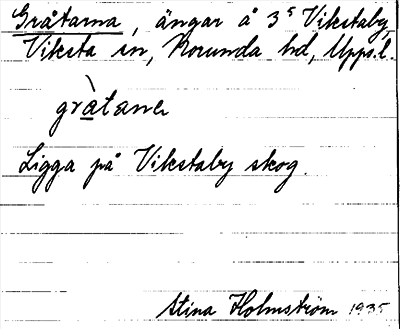 Gråtarna, ängar å 3⁵ Vikstaby,
Viksta sn, Norunda hd, Upps.l.
gràtane
Ligga på Vikstaby skog.
Stina Holmström 1935